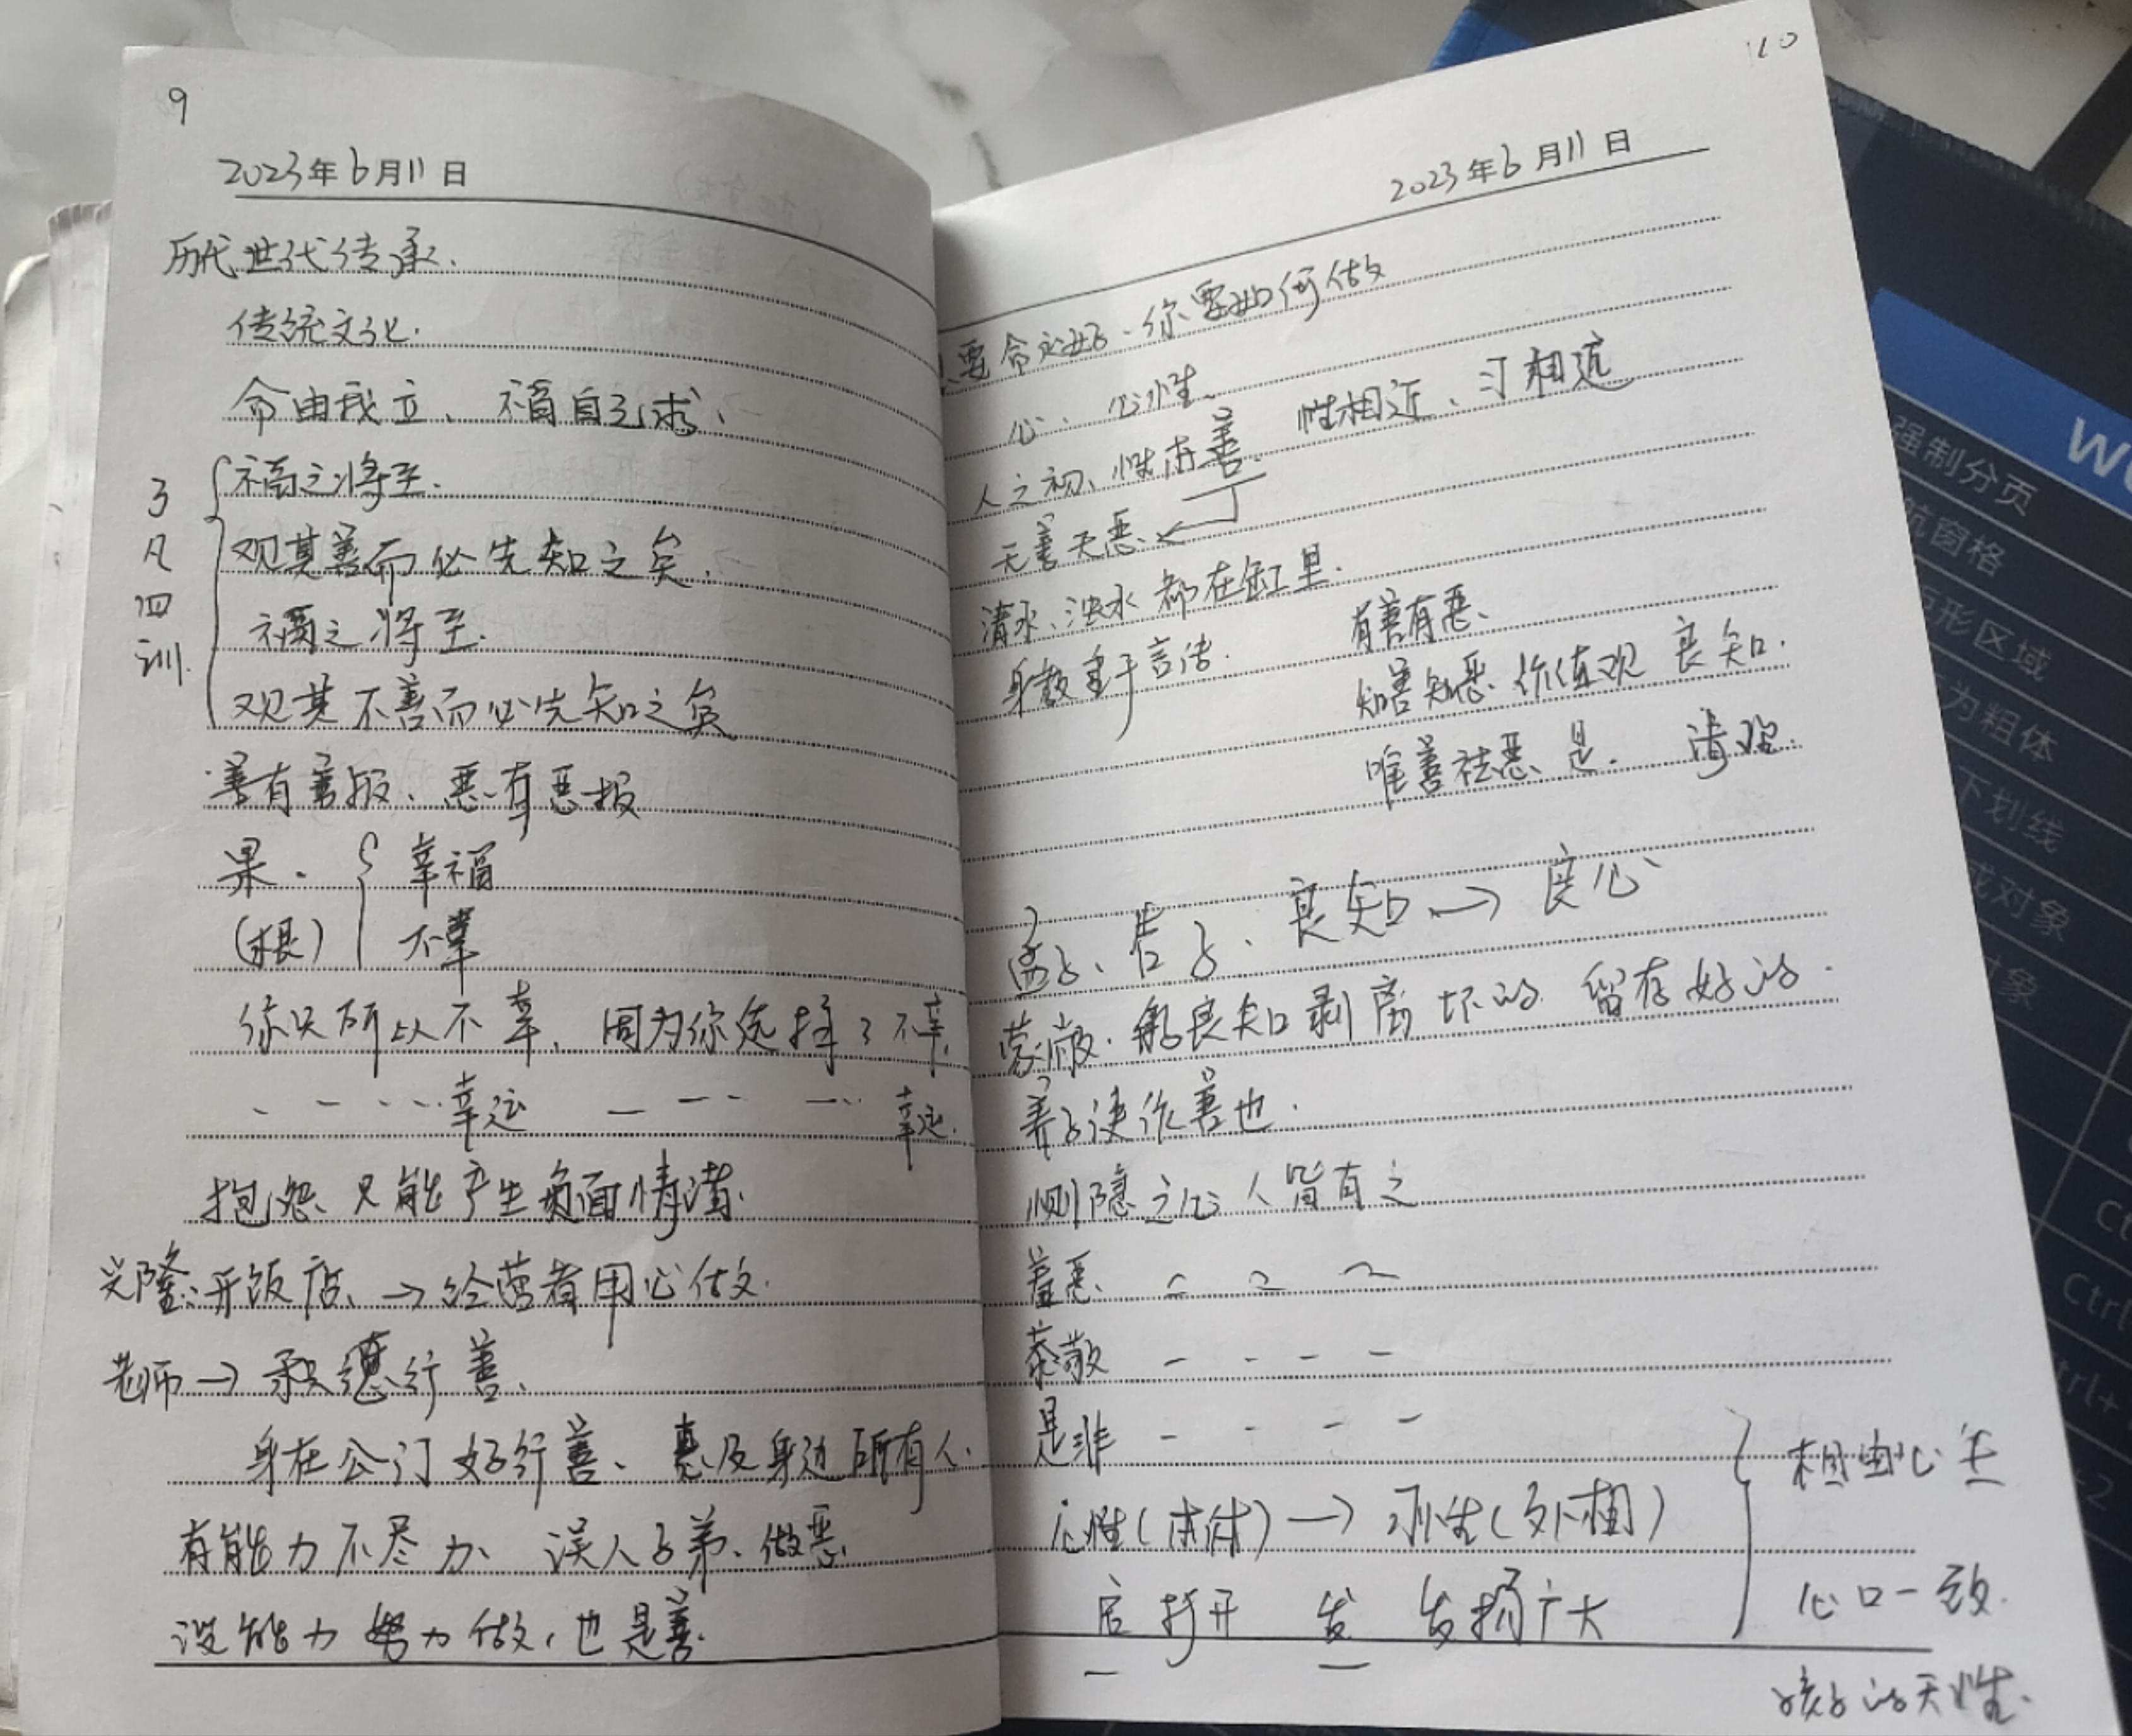 9
2023年6月11日
历代世代传承.
传统文化.
命由我立、福自己求、
了凡四训.
福之将至.
观其善而必先知之矣.
祸之将至.
观其不善而必先知之矣
善有善报、恶有恶报
果. 幸福
(根) 不幸
你只所以不幸、因为你选择了不幸.
幸运 幸运.
抱怨、只能产生负面情绪.
兴隆:开饭店、→给营者用心做.
老师→积德行善、
身在公门好行善、惠及身边所有人.
有能力不尽力、误人子弟、做恶
没能力努力做,也是善.
10
2023年6月11日
要命运好、你要如何做
心、心性、
人之初、性本善. 性相近、习相远
无善无恶.
清水、浊水都在缸里.
身教重于言传. 有善有恶、
知善知恶 价值观 良知.
唯善祛恶 是. 清
孟子、告子、良知→良心
蒙蔽. 良知剥离坏的 留存好的.
养子使作善也.
恻隐之心人皆有之
羞恶
恭敬
是非
心性(本体)→ 习性(外相) 相由心生
启 打开 发 发扬广大 心口一致.
孩子的天性.
强制分页
航窗格
形区域
为粗体
下划线
或对象
对象
Ctrl
Ctrl+